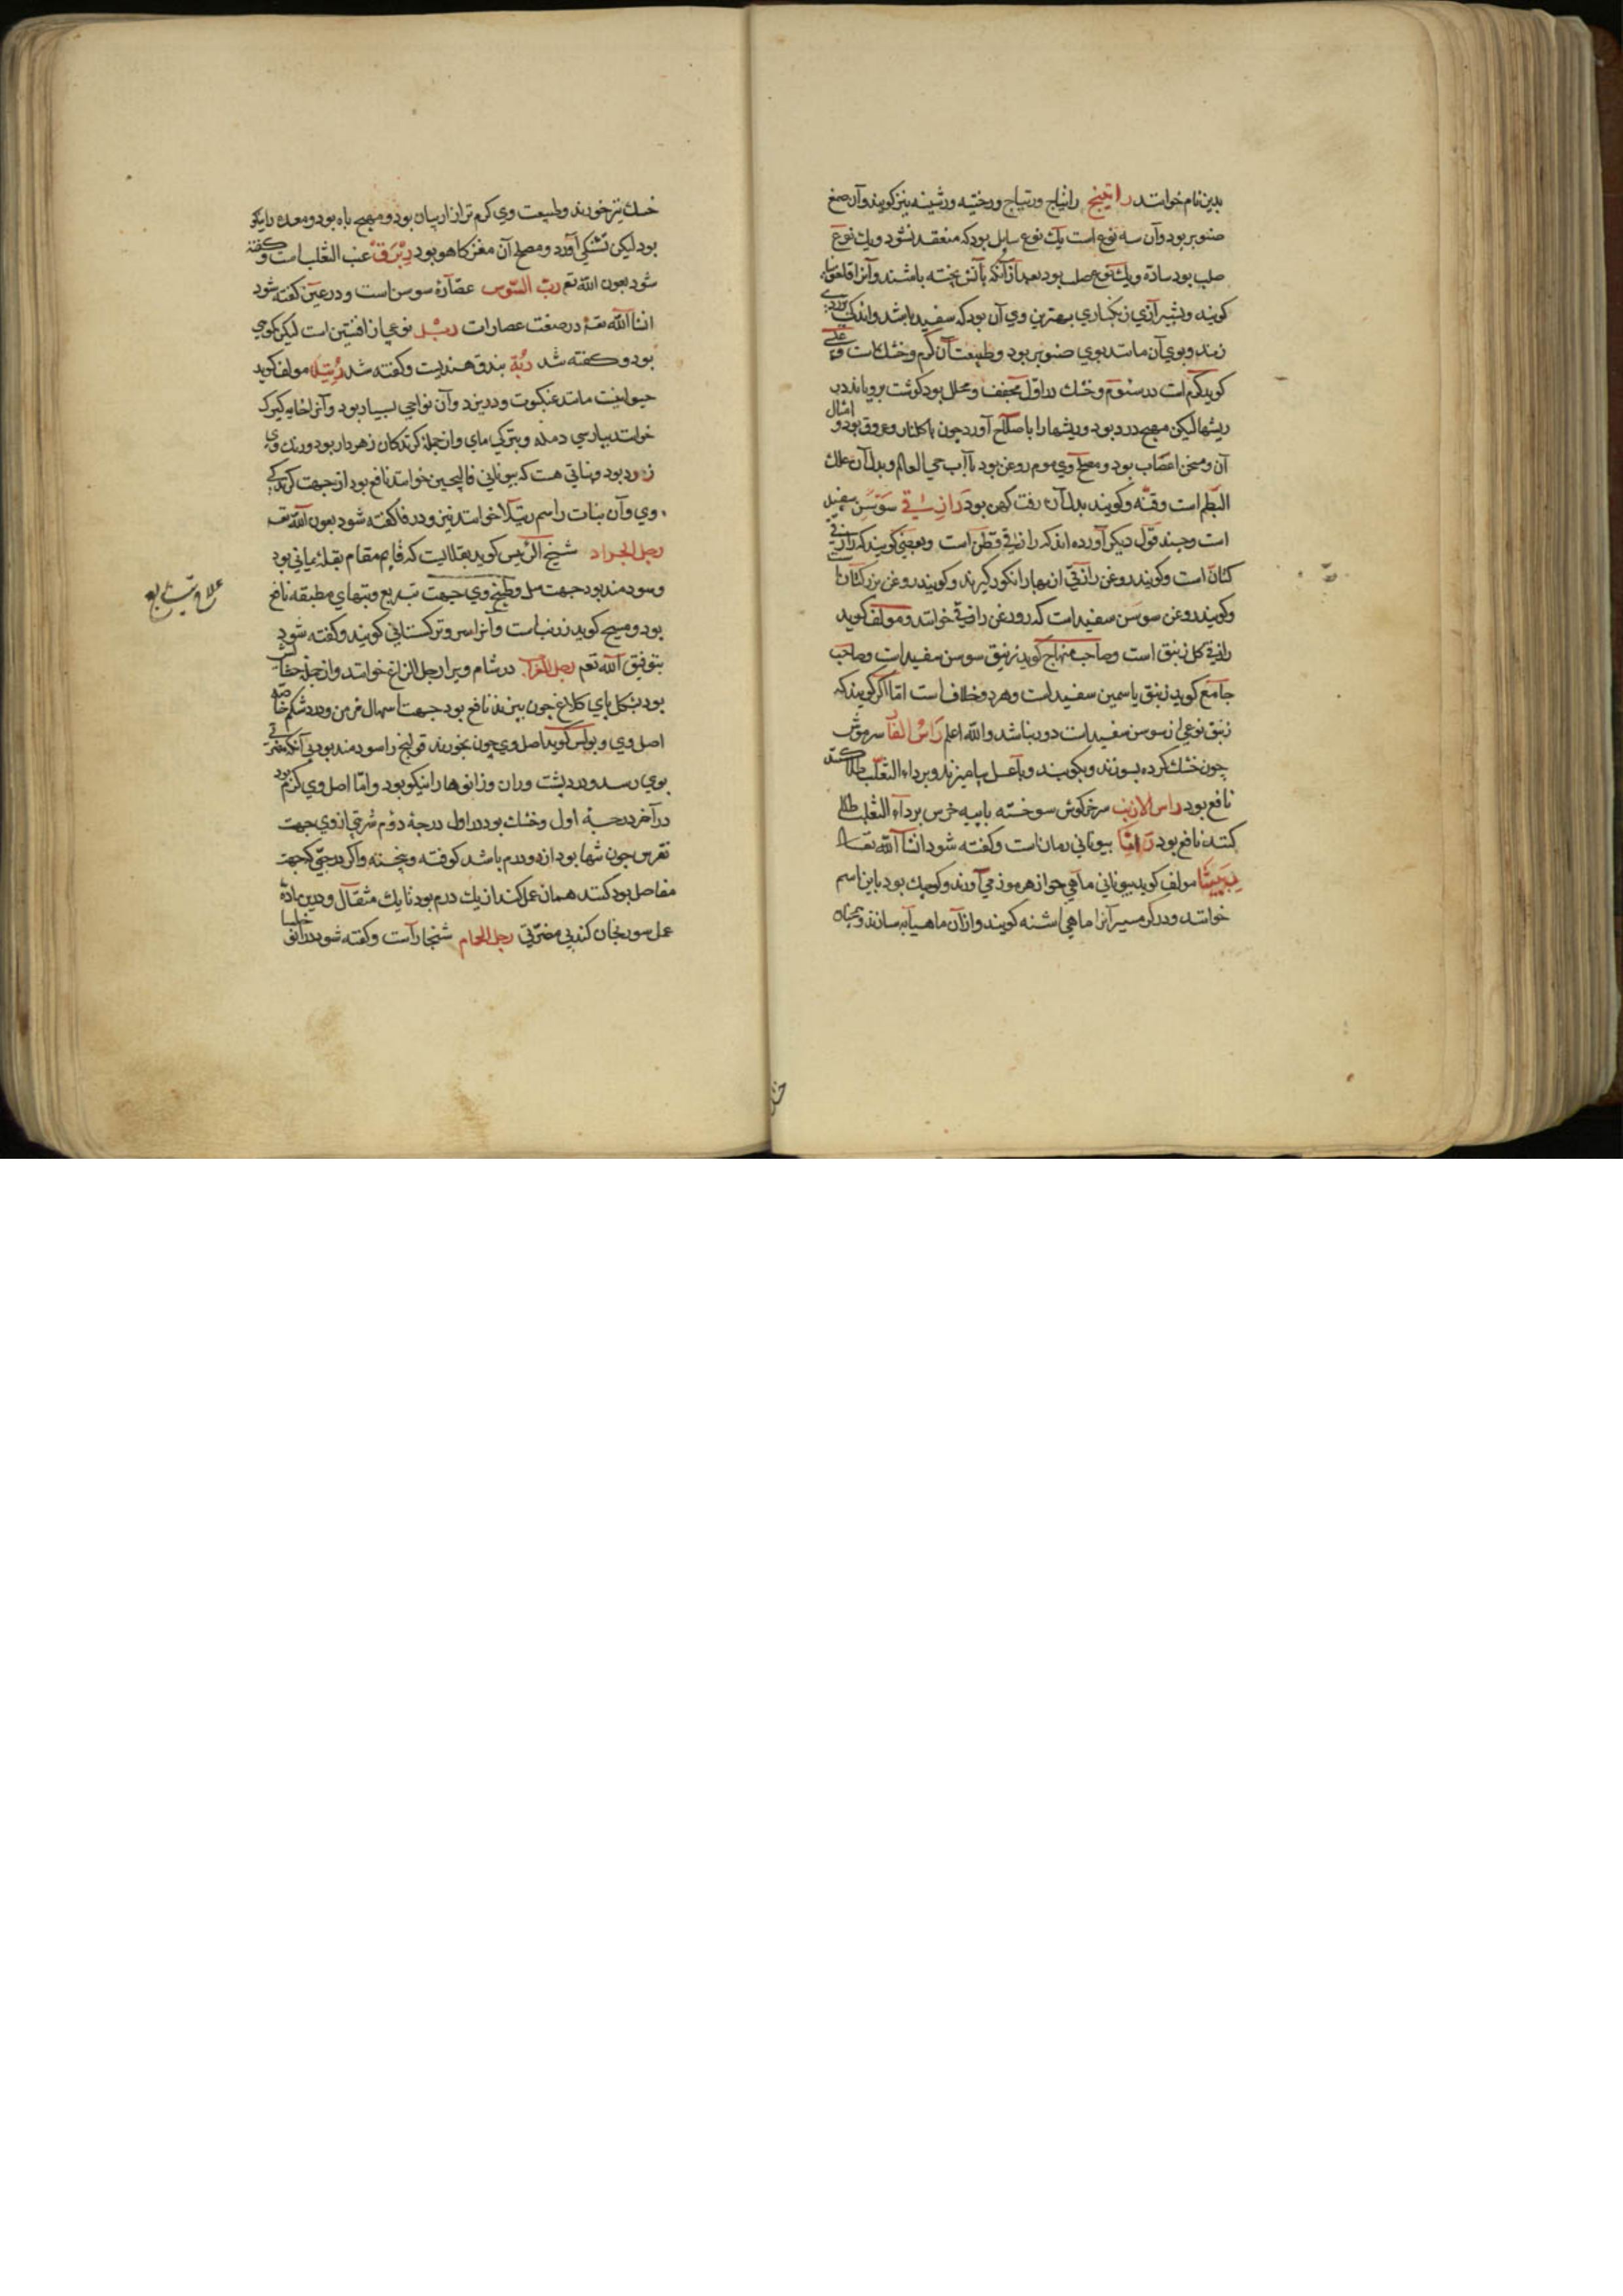 بدین نام خوانند راتینج راتیاج ورتیاج ورخینه ورشینه نیز کویند وآن صمغ
صنوبر بود وآن سه نوع است یک نوع سایل بود که منعقد نشود ویک نوع
صلب بود ساده ویک نوع صلب بود بعد از آنکه بآتش پخته باشند وآنرا قلفونیا
کویند وبشیرازی زنکباری بهترین وی آن بود که سفید باشد واندکی بزردی
زند وبوی آن مانند بوی صنوبر بود وطبیعت آن کرم وخشک است
کوید کرم است در سئوم وخشک در اول مجفف ومحلل بود کوشت برویاند در
ریشها لیکن مهیج درد بود وریشها را باصلاح آورد چون با کلنار وعروق بود و امثال
آن ومسخن اعصاب بود ومصلح وی موم روغن بود باآب حی العالم وبدل آن علک
البطم است وقنه وکویند بدل آن زفت کهن بود رازقی سوسن سفید
است وچند قول دیکر آورده اند که رازقی قطن است وبعضی کویند که رازقی
کتان است وکویند روغن رازقی از بهار انکور کیرند وکویند روغن بزر کتان
وکویند روغن سوسن سفید است که روغن رازقی خوانند ومولف کوید
رازقی کل زنبق است وصاحب منهاج کوید زنبق سوسن سفید است وصاحب
جامع کوید زنبق یاسمین سفید است وهر دو خلاف است اما اکر کویند که
زنبق نوعی از سوسن سفید است دور نباشد والله اعلم راس الفار سر موش
چون خشک کرده بسوزند وبکوبند وباعسل بیامیزند وبر داء الثعلب طلا کنند
نافع بود راس الارنب سر خرکوش سوخته باپیه خرس بر داء الثعلب طلی
کنند نافع بود بیونانی رمان است وکفته شود انشا الله تعالی
ربیثا مولف کوید بیونانی ماهی جو از هرموز می آورند وکوچک بود باین اسم
خوانند ودر کرمسیر آنرا ماهی اشنه کویند واز آن ماهیابه سازند
خشک نیز خورند وطبیعت وی کرم تر از اربیان بود ومهیج باه بود ومعده را نیکو
بود لیکن تشنکی آورد ومصلح آن مغز کاهو بود ربرق عنب الثعلب است وکفته
شود بعون الله تع رب السوس عصاره سوسن است ودر عین کفته شود
انشا الله تعه در صفت عصارات ربل نوعی از افسنتین است لیکن کوهی
بود وکفته شد رته بندق هندیست وکفته شد رتیلا مولف کوید
حیوانیست مانند عنکبوت ودر یزد وآن نواحی بسیار بود وآنرا خایه کیرک
خوانند بپارسی دمله وبترکی مای واز جمله کزندکان زهردار بود ورنک وی
زرد بود ونباتی هست که بیونانی فالیجین خوانند نافع بود از جهت کزندکی
وی وآن نبات را اسم رتیلا خوانند نیز ودر فا کفته شود بعون الله تعه
رجل الجراد شیخ الرئیس کوید بقلاایست که قایم مقام بقله یمانی بود
وسودمند بود جهت سل وطبیخ وی جهت تب ربع وتبهای مطبقه نافع
بود ومسیح کوید زرنب است وآنرا سرو ترکستانی کویند وکفته شود
بتوفیق الله تعم رجل الغراب در شام ویرا رجل الزاغ خوانند
بود بشکل پای کلاغ چون بپزند نافع بود جهت اسهال مزمن ودرد شکم خاصه
اصل وی وبولس کوید اصل وی چون بخورند قولنج را سودمند بود بی آنکه مضرتی
بوی رسد ودرد پشت وران وزانوها را نیکو بود واما اصل وی کرم بود
در آخر درجه اول وخشک بود در اول درجه دوم شربتی از وی جهت
نقرس چون تنها بود از دو درم باشد کوفته وپخته واکر در حبی که جهت
مفاصل بود کنند همان عمل کند از یک درم بود تا یک مثقال ودرین ماده
عمل سورنجان کند بی مضرتی رجل الحمام شنجار است وکفته شود در الف
علاج تب ربع